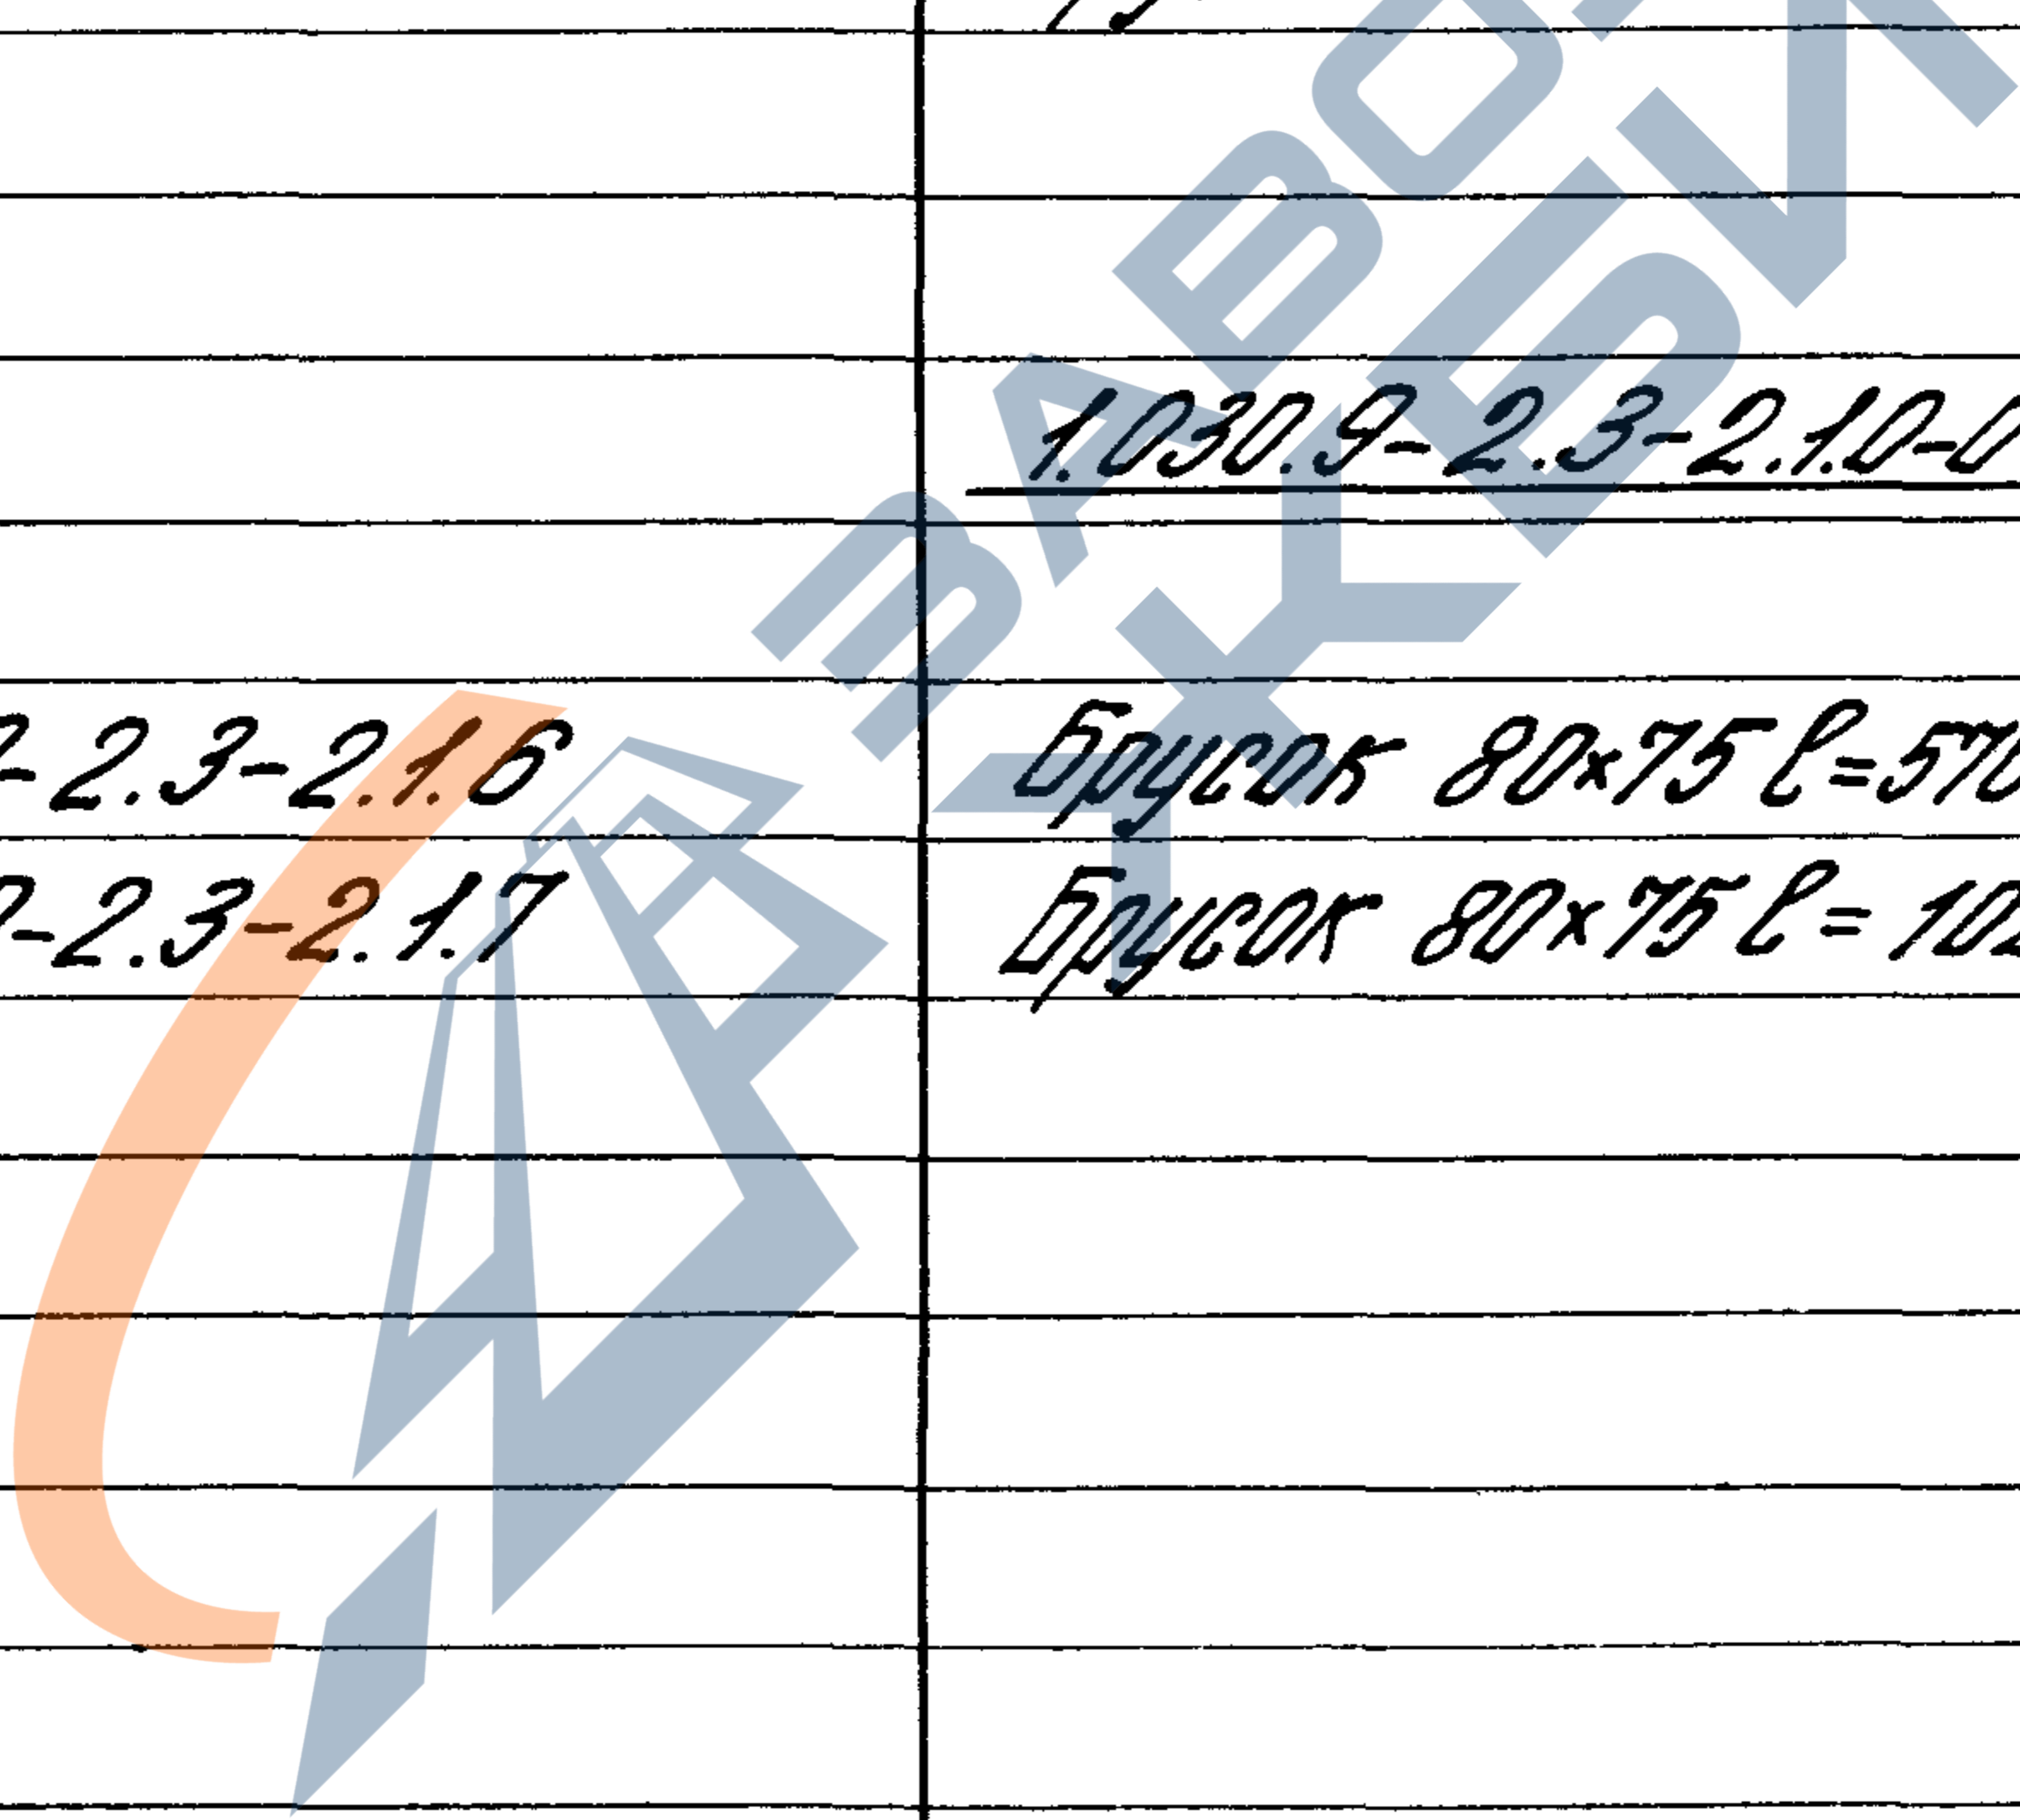 1.030.9-2.3-2.1.0-0
- 2.3-2.1.6 Брусок 80х75 l=570
-2.3-2.1.7 Брусок 80х75 l= 102
ЗАВОД